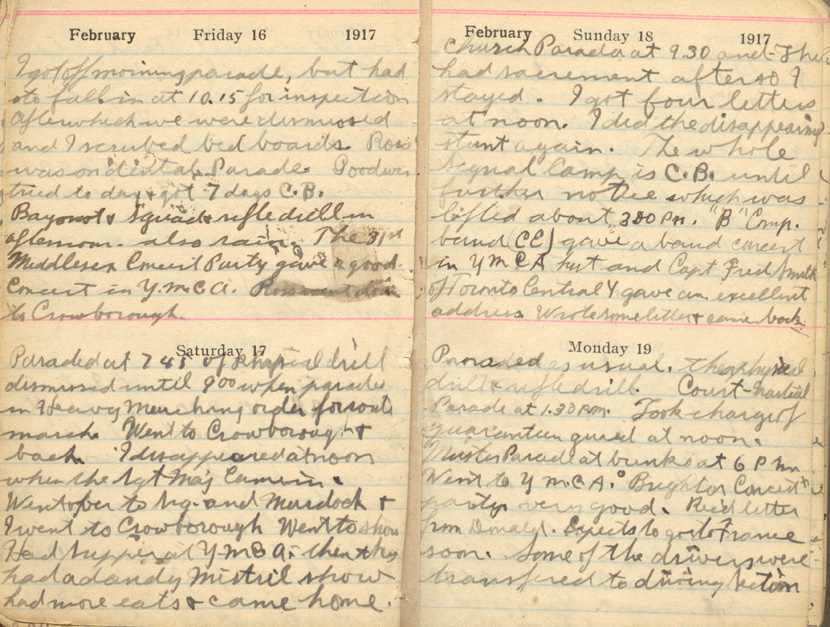 February Friday 16 1917
I got off morning parade, but had
to fall in at 10.15 for inspection
after which we were dismissed
and I scrubed bed boards. Ross
was on dental Parade. Poodwin
tried to day & got 7 days C.B.
Bayonet & Squad & rifle drill in
afternoon. also rain. The 31st
Middlesex Concert Party gave a good
Concert in Y.M.C.A. Ross went down
to Crowborough.
Saturday 17
Paraded at 7 45 for physical drill
dismissed until 9 00 when parade
in Heavy Marching order for route
march. Went to Crowborough &
back. I disappeared at noon
when the Sgt Maj Came in.
Went over to Hq. and Murdock &
I went to Crowborough Went to show
Had supper at Y.M.C.A. then they
had a dandy Mistril show
had more eats & came home.
February Sunday 18 1917
Church Parade at 9.30 and they
had sacrement after so I
stayed. I got four letters
at noon. I did the disappearing
stunt again. The whole
Signal Camp is C.B. until
further notice which was
lifted about 3.00 P.M. "B" Comp.
band (CE) gave a band concert
in Y M C A hut and Capt Fred Smith
of Toronto Central Y gave an excellent
address. Wrote some letters & came back
Monday 19
Paraded as usual. the physical
drill & rifle drill. Court-Martial
Parade at 1.30 P.M. Took charge of
quaranteen guard at noon.
Muster Parade at bunks at 6 P M
Went to Y M.C.A. "Brighton Concert"
party very good. Rec'd letter
from Donald. Expects to go to France
soon. Some of the drivers were
transfered to driving section